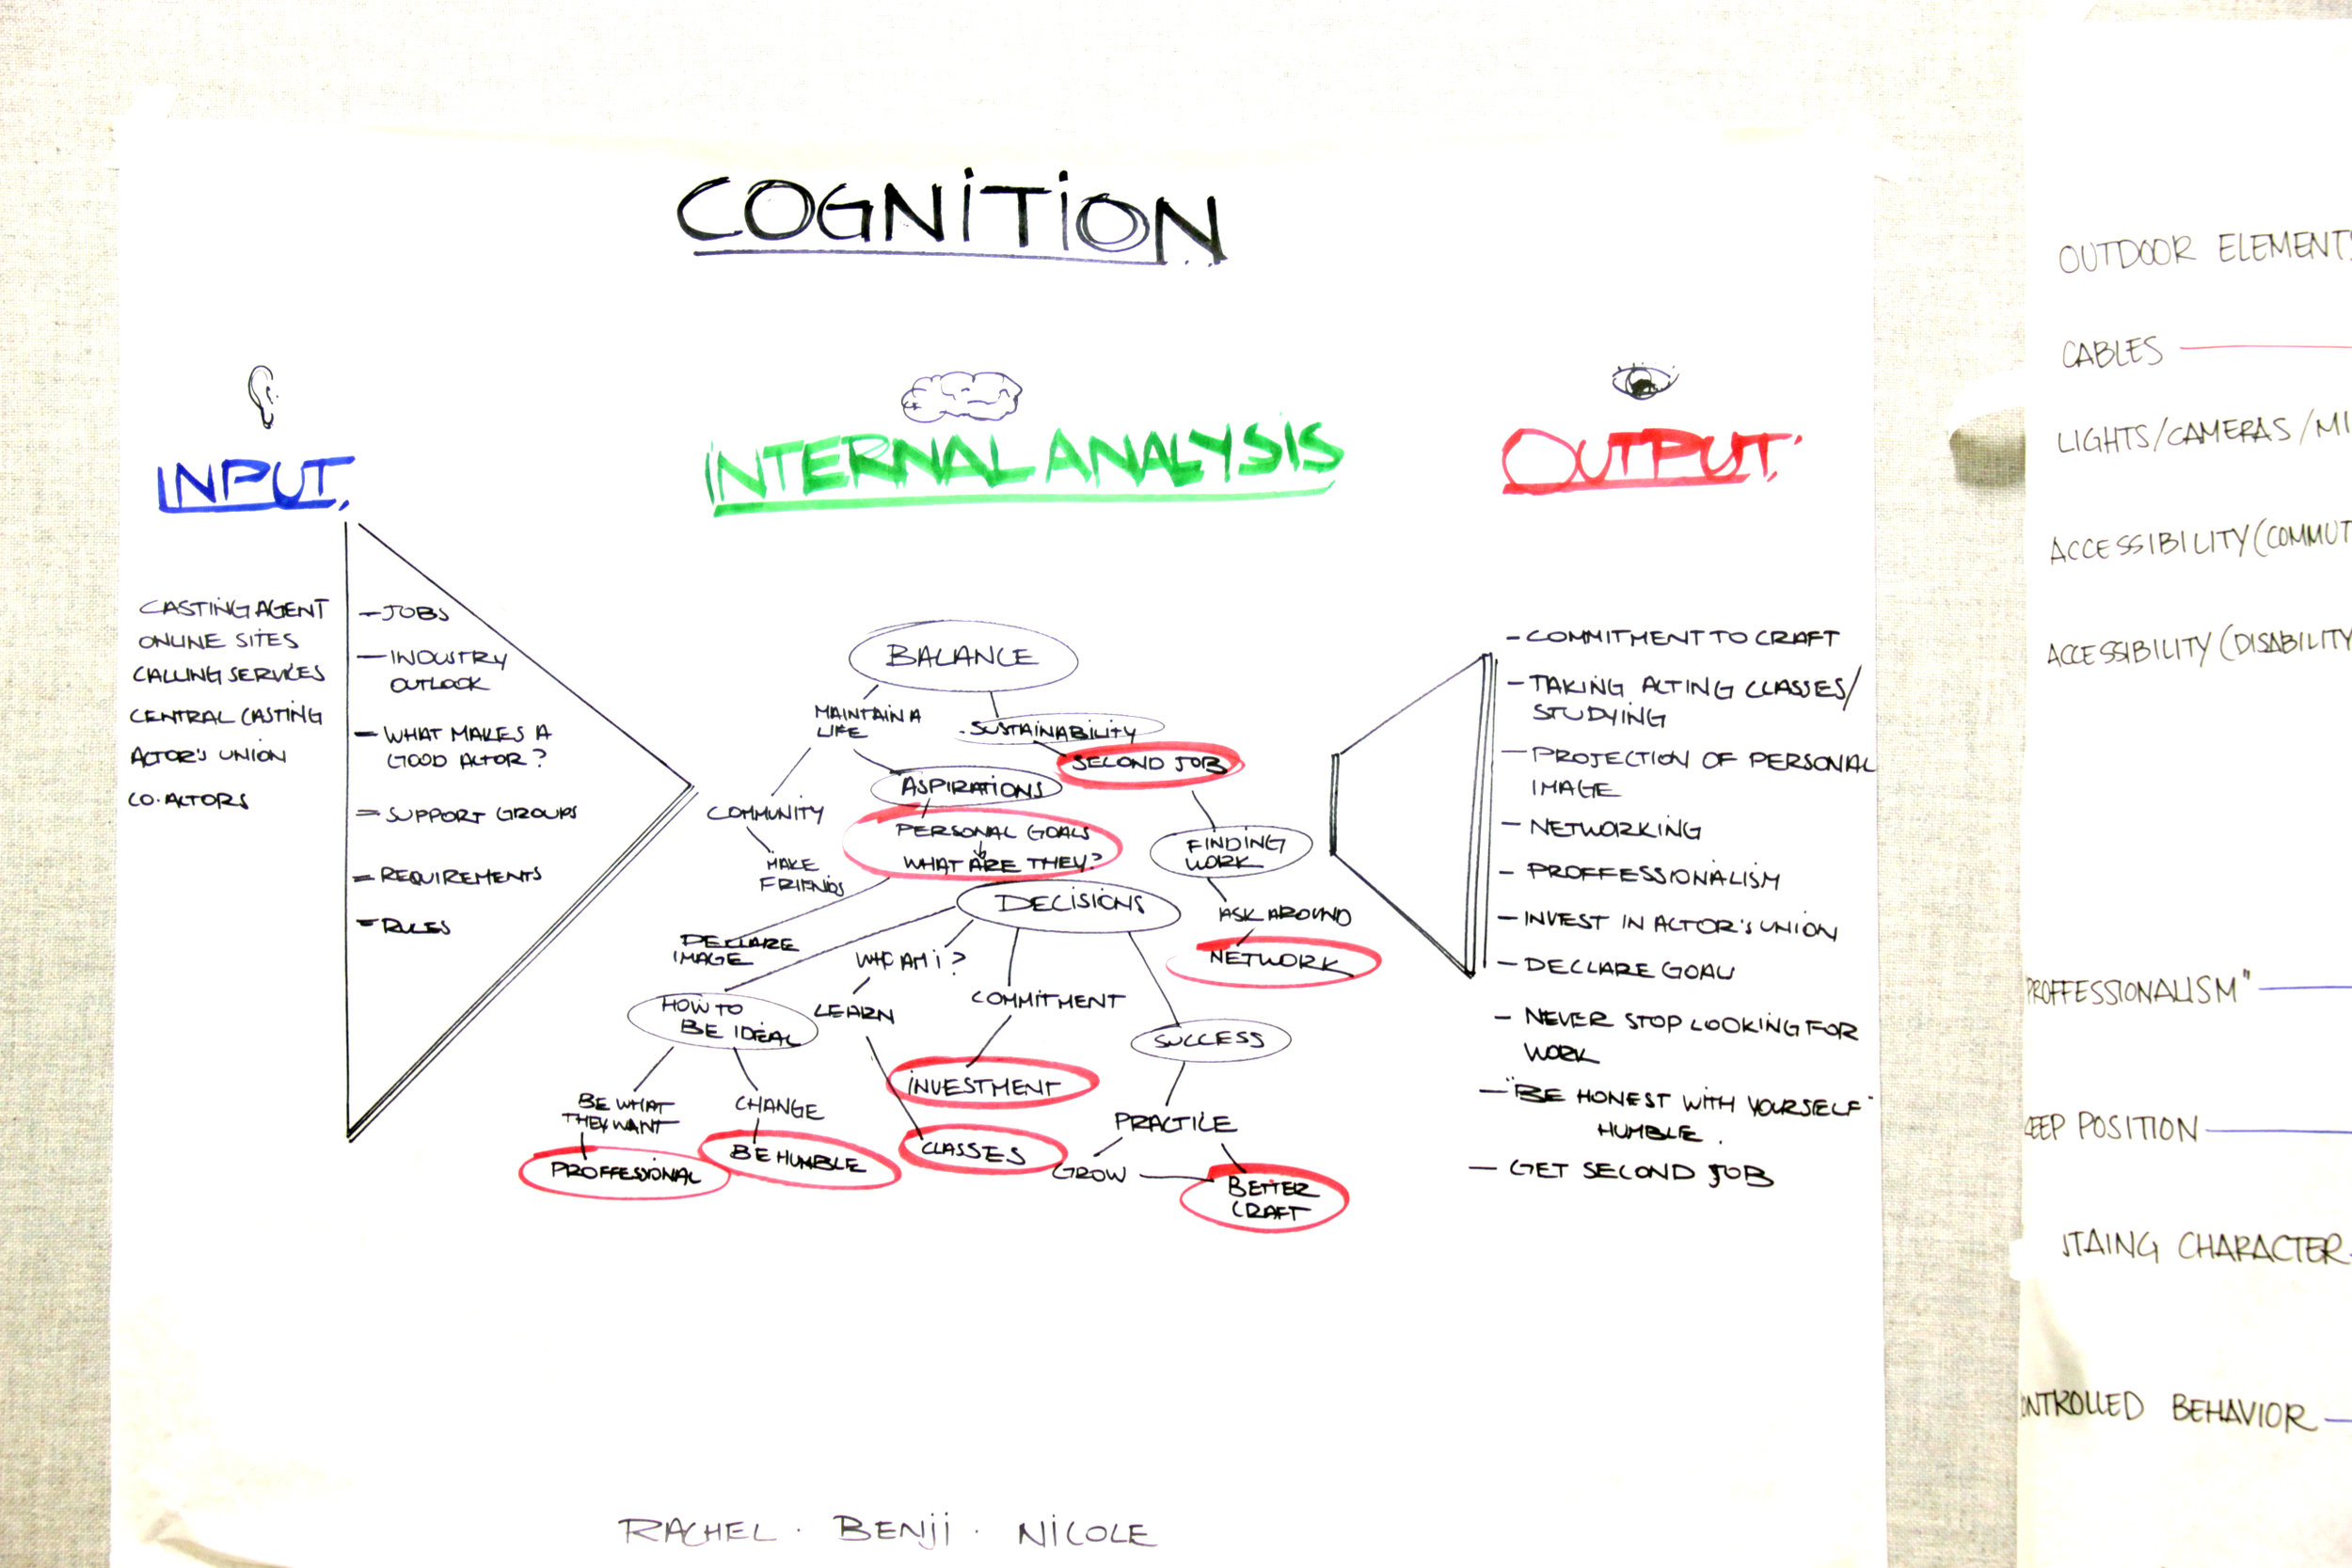 COGNITION
INPUT
CASTING AGENT
ONLINE SITES
CALLING SERVICES
CENTRAL CASTING
ACTOR'S UNION
CO.ACTORS
- JOBS
- INDUSTRY
OUTLOOK
- WHAT MAKES A
GOOD ACTOR?
- SUPPORT GROUPS
- REQUIREMENTS
- RULES
INTERNAL ANALYSIS
BALANCE
MAINTAIN A
LIFE
SUSTAINABILITY
SECOND JOB
ASPIRATIONS
COMMUNITY
PERSONAL GOALS
WHAT ARE THEY?
MAKE
FRIENDS
FINDING
WORK
DECISIONS
ASK AROUND
NETWORK
DECLARE
IMAGE
WHO AM I?
HOW TO
BE IDEAL
LEARN
COMMITMENT
SUCCESS
INVESTMENT
BE WHAT
THEY WANT
CHANGE
PRACTICE
PROFFESSIONAL
BE HUMBLE
CLASSES
GROW
BETTER
CRAFT
OUTPUT
- COMMITMENT TO CRAFT
- TAKING ACTING CLASSES/
STUDYING
- PROJECTION OF PERSONAL
IMAGE
- NETWORKING
- PROFFESSIONALISM
- INVEST IN ACTOR'S UNION
- DECLARE GOAL
- NEVER STOP LOOKING FOR
WORK
- "BE HONEST WITH YOURSELF"
HUMBLE.
- GET SECOND JOB
RACHEL · BENJI · NICOLE
OUTDOOR ELEMENTS
CABLES
LIGHTS/CAMERAS/MI
ACCESSIBILITY (COMMUT
ACCESSIBILITY (DISABILITY
PROFFESSIONALISM"
EEP POSITION
STAING CHARACTER
ONTROLLED BEHAVIOR